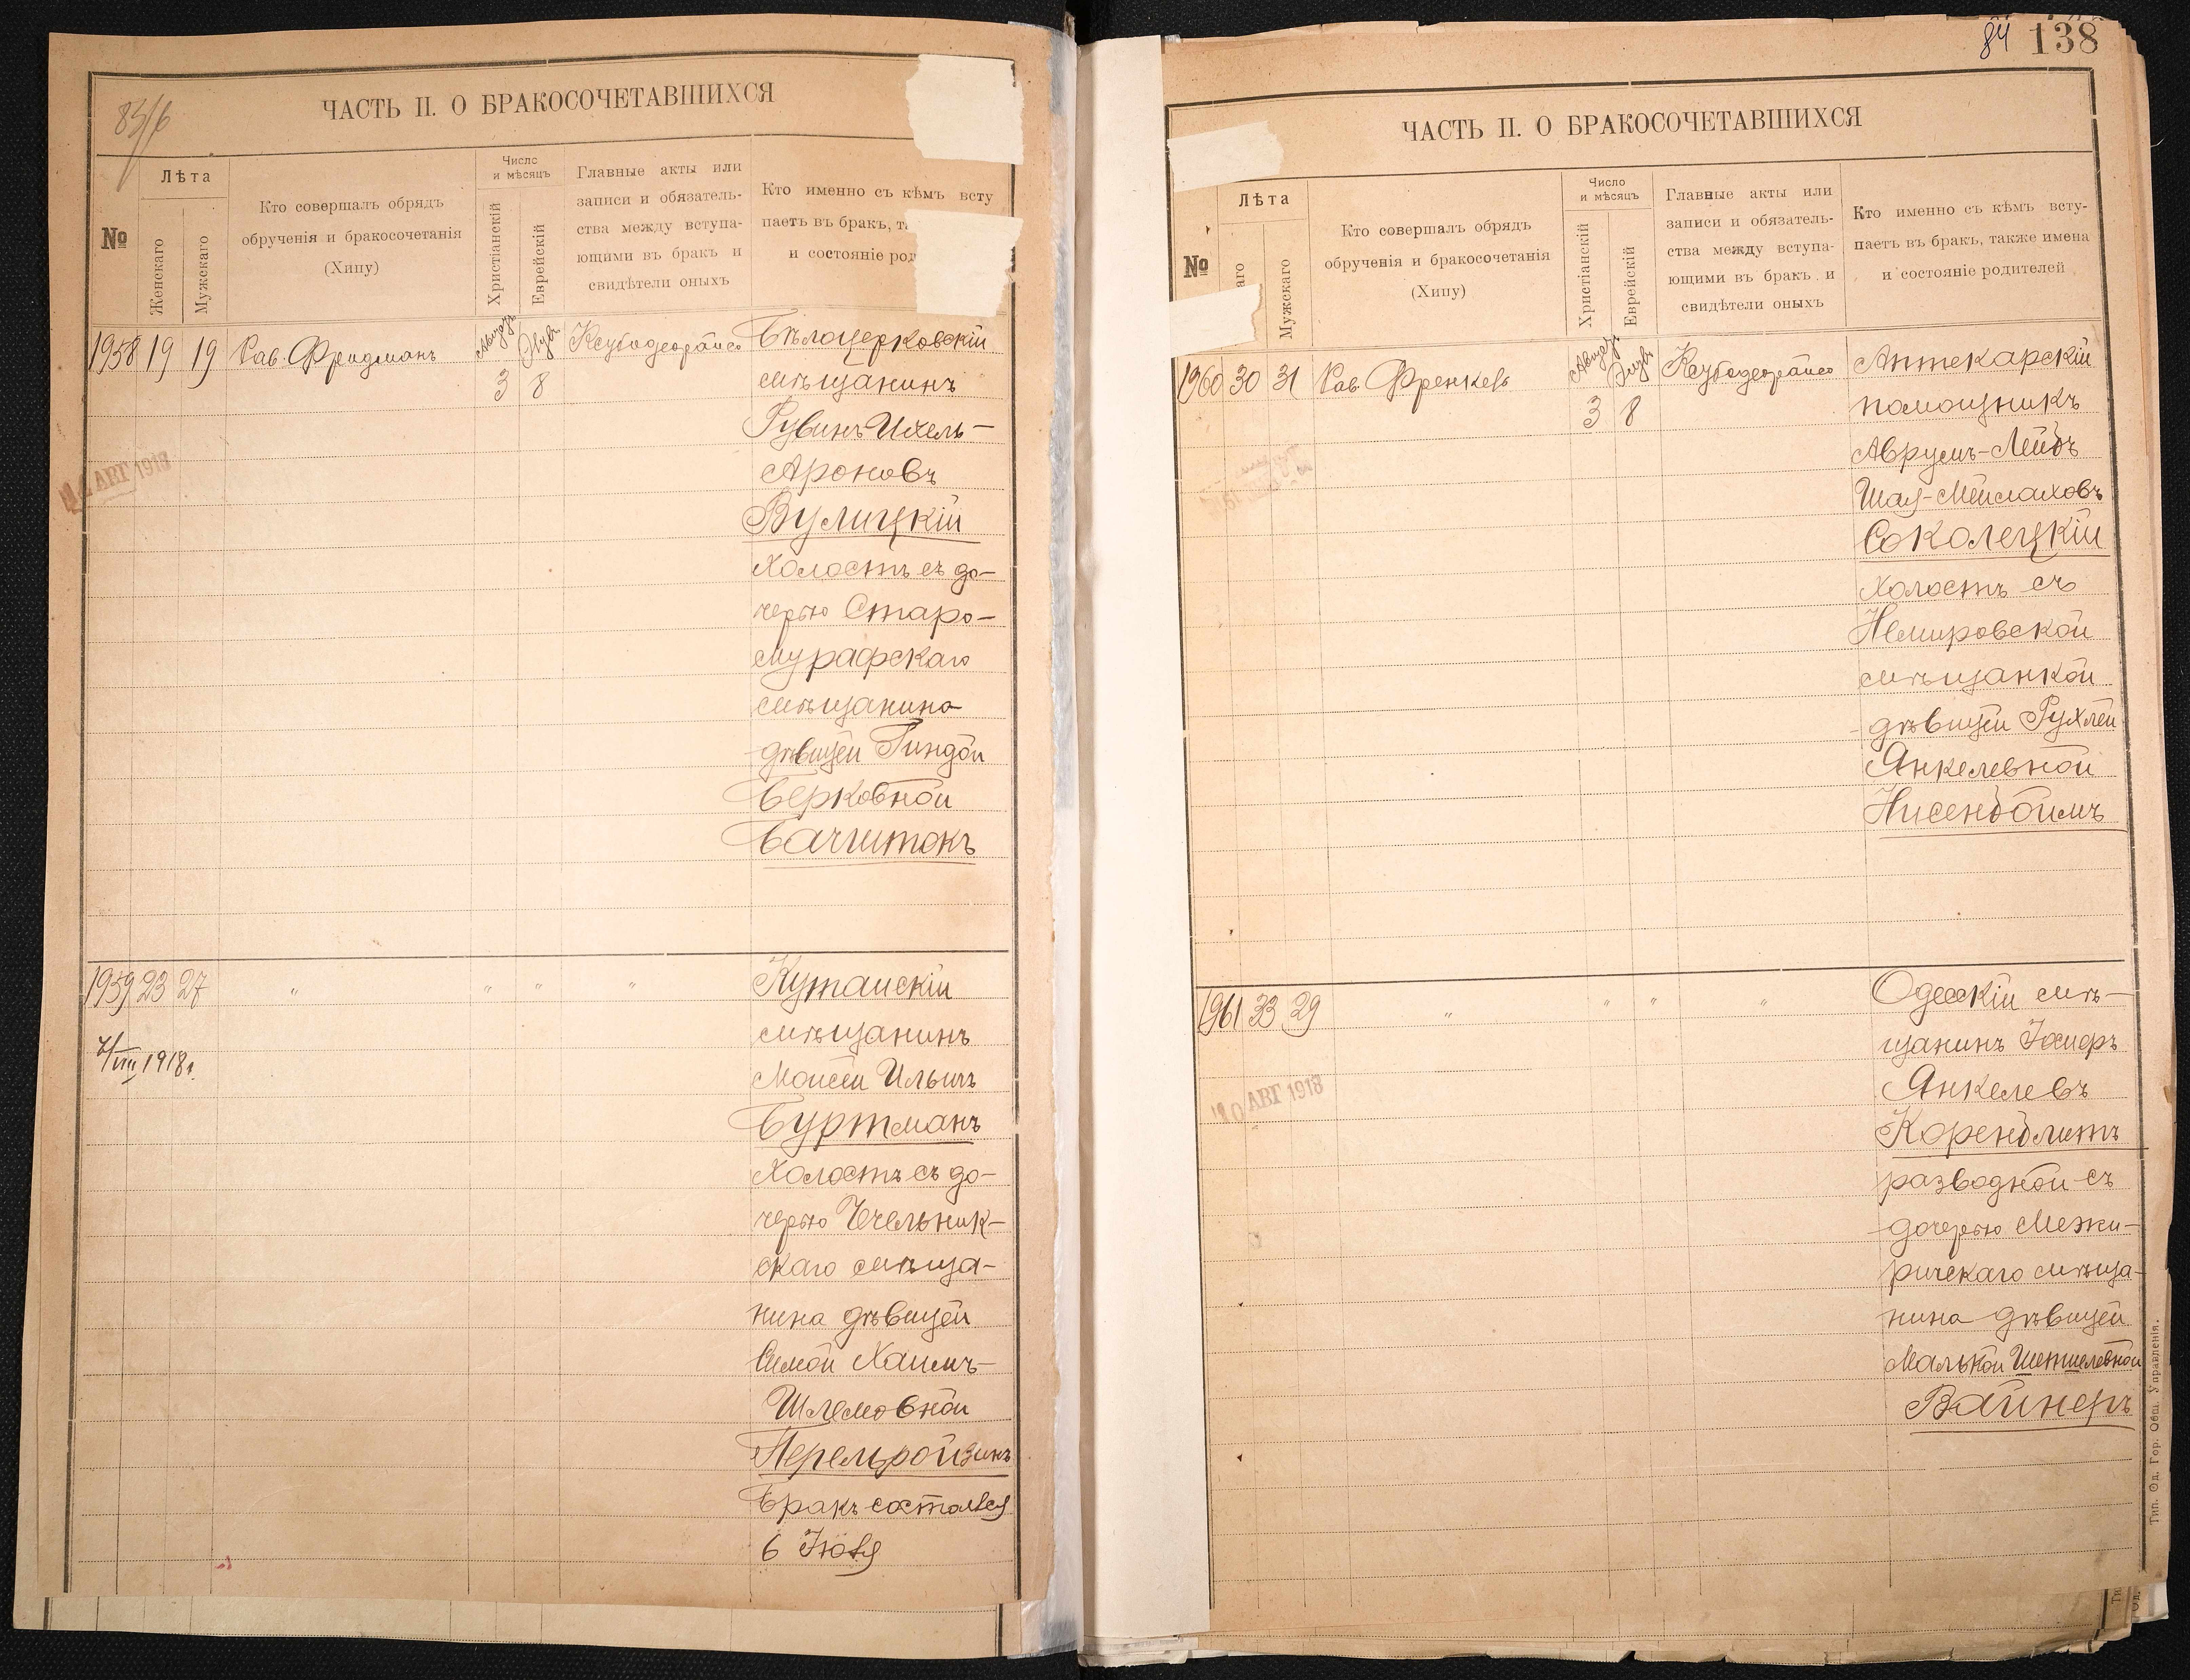 85/6
ЧАСТЬ II. О БРАКОСОЧЕТАВШИХСЯ
№
Лѣта
Женскаго
Мужскаго
Кто совершалъ обрядъ
обрученія и бракосочетанія
(Хипу)
Число
и мѣсяцъ
Христіанскій
Еврейскій
Главные акты или
записи и обязатель-
ства между вступа-
ющими въ бракъ и
свидѣтели оныхъ
Кто именно съ кѣмъ всту
паетъ въ бракъ,
и состояніе
1958 19 19 Рав. Фридманъ
3 8
Бѣлоцерковскій
мѣщанинъ
Рувинъ Ихель-
Ароновъ
Вулицкій
холостъ съ до-
черью Старо-
мурафскаго
мѣщанина
дѣвицей Гиндой
Берковной
Бачитокъ
АВГ 1918
1959 23 27 " " " "
1918 г.
Кутаискій
мѣщанинъ
Моисей Ильичъ
Буртманъ
холостъ съ до-
черью Чечельник-
скаго мѣща-
нина дѣвицей
Симой Хаимъ-
Шлемовной
Перельройзинъ
Бракъ состоялся
6 Іюля
84 138
ЧАСТЬ II. О БРАКОСОЧЕТАВШИХСЯ
№
Лѣта
аго
Мужскаго
Кто совершалъ обрядъ
обрученія и бракосочетанія
(Хипу)
Число
и мѣсяцъ
Христіанскій
Еврейскій
Главные акты или
записи и обязатель-
ства между вступа-
ющими въ бракъ и
свидѣтели оныхъ
Кто именно съ кѣмъ всту-
паетъ въ бракъ, также имена
и состояніе родителей
1960 30 31 Рав. Френкель
3 8
Аптекарскій
помощникъ
Аврумъ-Лейбъ
Шая-Мейлаховъ
Соколецкій
холостъ съ
Немировской
мѣщанкой
дѣвицей Рухлей
Янкелевной
Нисенбоймъ
1961 33 29 " " " "
10 АВГ 1918
Одесскій мѣ-
щанинъ
Янкелевъ
Коренблитъ
разводной съ
дочерью Межи-
ричскаго мѣща-
нина дѣвицей
Малькой
Вайнеръ
Тип. Од. Гор. Общ. Управленія.